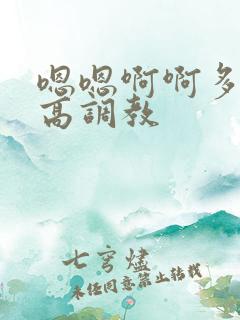 嗯嗯啊啊多
高調教
七穹燼
未经同意禁止转载